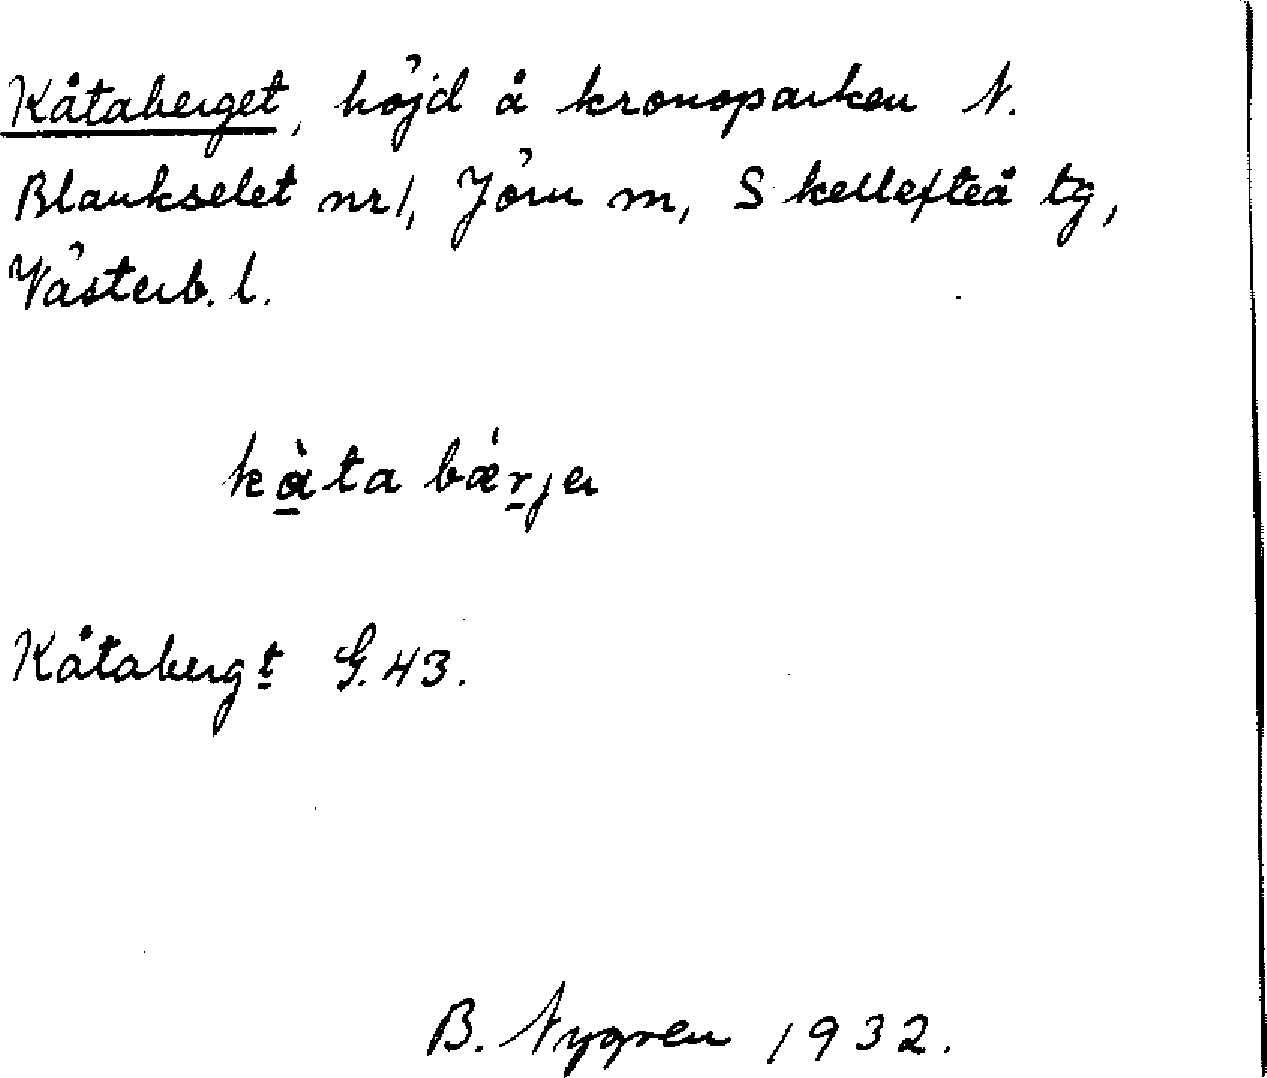 Kåtaberget, höjd å kronoparken N.
Blankselet nr 1, Jörn m, Skellefteå tg,
Västerb. l.
kàta bǽrje
Kåtabergt G. 43.
B. Nygren 1932.